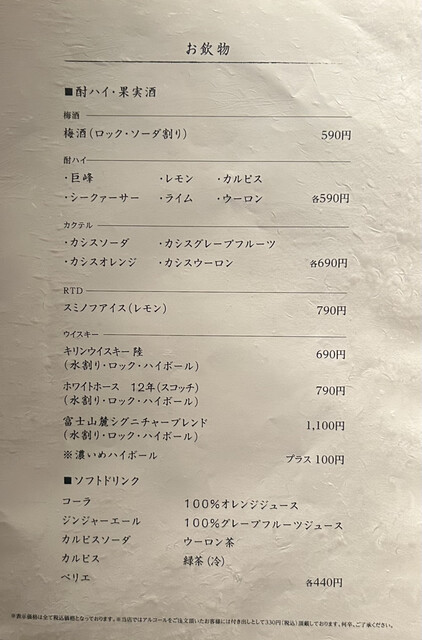 お飲物
■酎ハイ・果実酒
梅酒
梅酒(ロック・ソーダ割り) 590円
酎ハイ
・巨峰 ・レモン ・カルピス
・シークァーサー ・ライム ・ウーロン 各590円
カクテル
・カシスソーダ ・カシスグレープフルーツ
・カシスオレンジ ・カシスウーロン 各690円
RTD
スミノフアイス(レモン) 790円
ウイスキー
キリンウイスキー 陸 690円
(水割り・ロック・ハイボール)
ホワイトホース 12年(スコッチ) 790円
(水割り・ロック・ハイボール)
富士山麓シグニチャーブレンド 1,100円
(水割り・ロック・ハイボール)
※濃いめハイボール プラス 100円
■ソフトドリンク
コーラ 100%オレンジジュース
ジンジャーエール 100%グレープフルーツジュース
カルピスソーダ ウーロン茶
カルピス 緑茶(冷)
ペリエ 各440円
※表示価格は全て税込価格となっております。※当店ではアルコールをご注文頂いたお客様には付き出しとして330円(税込)頂戴しております。何卒、ご了承ください。